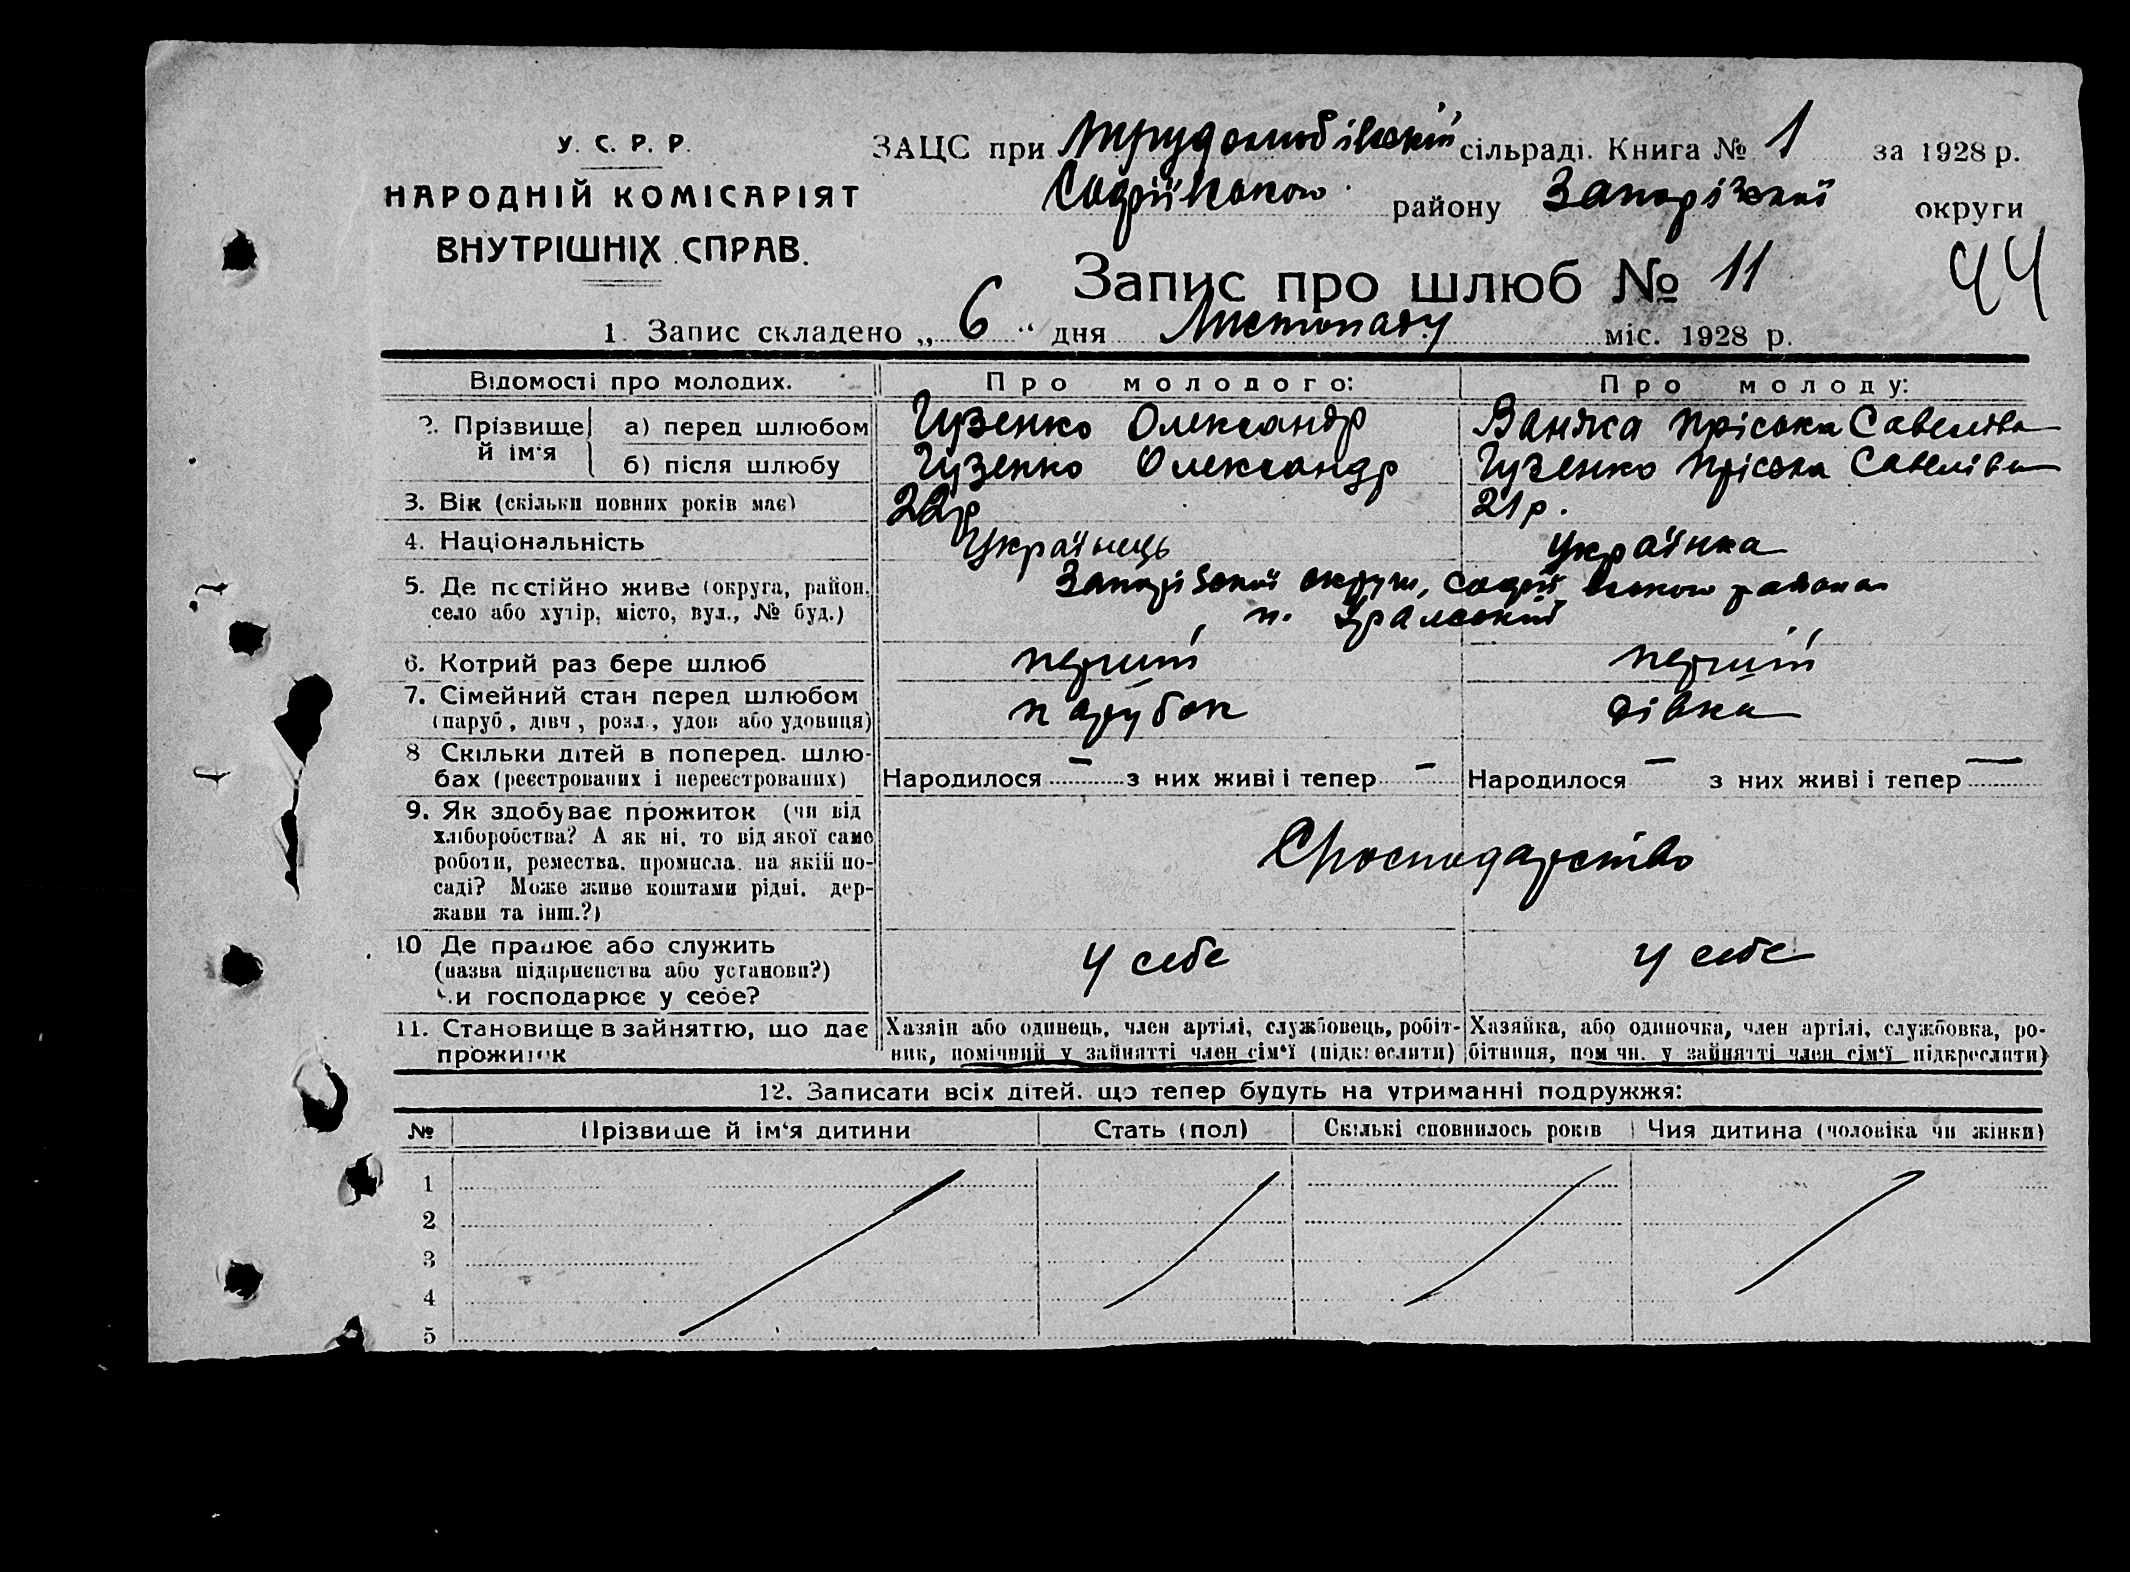 У. С. Р. Р.
НАРОДНІЙ КОМІСАРІЯТ
ВНУТРІШНІХ СПРАВ.
ЗАЦС при Трудолюбівській сільраді. Книга № 1 за 1928 р.
Софіївського району Запорізької округи
Запис про шлюб № 11
44
1. Запис складено „ 6 “ дня Листопаду міс. 1928 р.
Відомості про молодих. Про молодого: Про молоду:
2. Прізвище й ім'я а) перед шлюбом Гузенко Олександр Ваняка Пріська Савеліва
б) після шлюбу Гузенко Олександр Гузенко Пріська Савеліва
3. Вік (скільки повних років має) 22 р 21 р.
4. Національність Українець Українка
5. Де постійно живе (округа, район, Запорізької округи, Софіївського района
село або хутір, місто, вул., № буд.) п. Уральский
6. Котрий раз бере шлюб перший перший
7. Сімейний стан перед шлюбом парубок дівка
(паруб., дівч., розл., удов. або удовиця)
8 Скільки дітей в поперед. шлю-
бах (реєстрованих і нереєстрованих) Народилося — з них живі і тепер — Народилося — з них живі і тепер —
9. Як здобуває прожиток (чи від
хліборобства? А як ні, то від якої само
роботи, ремества, промисла, на якій по-
саді? Може живе коштами рідні, дер-
жави та інш.?)
10 Де працює або служить у себе у себе
(назва підприємства або установи?)
Чи господарює у себе?
11. Становище в зайняттю, що дає Хазяін або одинець, член артілі, службовець, робіт- Хазяйка, або одиночка, член артілі, службовка, ро-
прожиток ник, помічний у зайнятті член сім'ї (підкреслити) бітниця, помічн. у зайнятті член сім'ї підкреслити)
12. Записати всіх дітей, що тепер будуть на утриманні подружжя:
№ Прізвище й ім'я дитини Стать (пол) Скількі сповнилось років Чия дитина (чоловіка чи жінки)
1
2
3
4
5